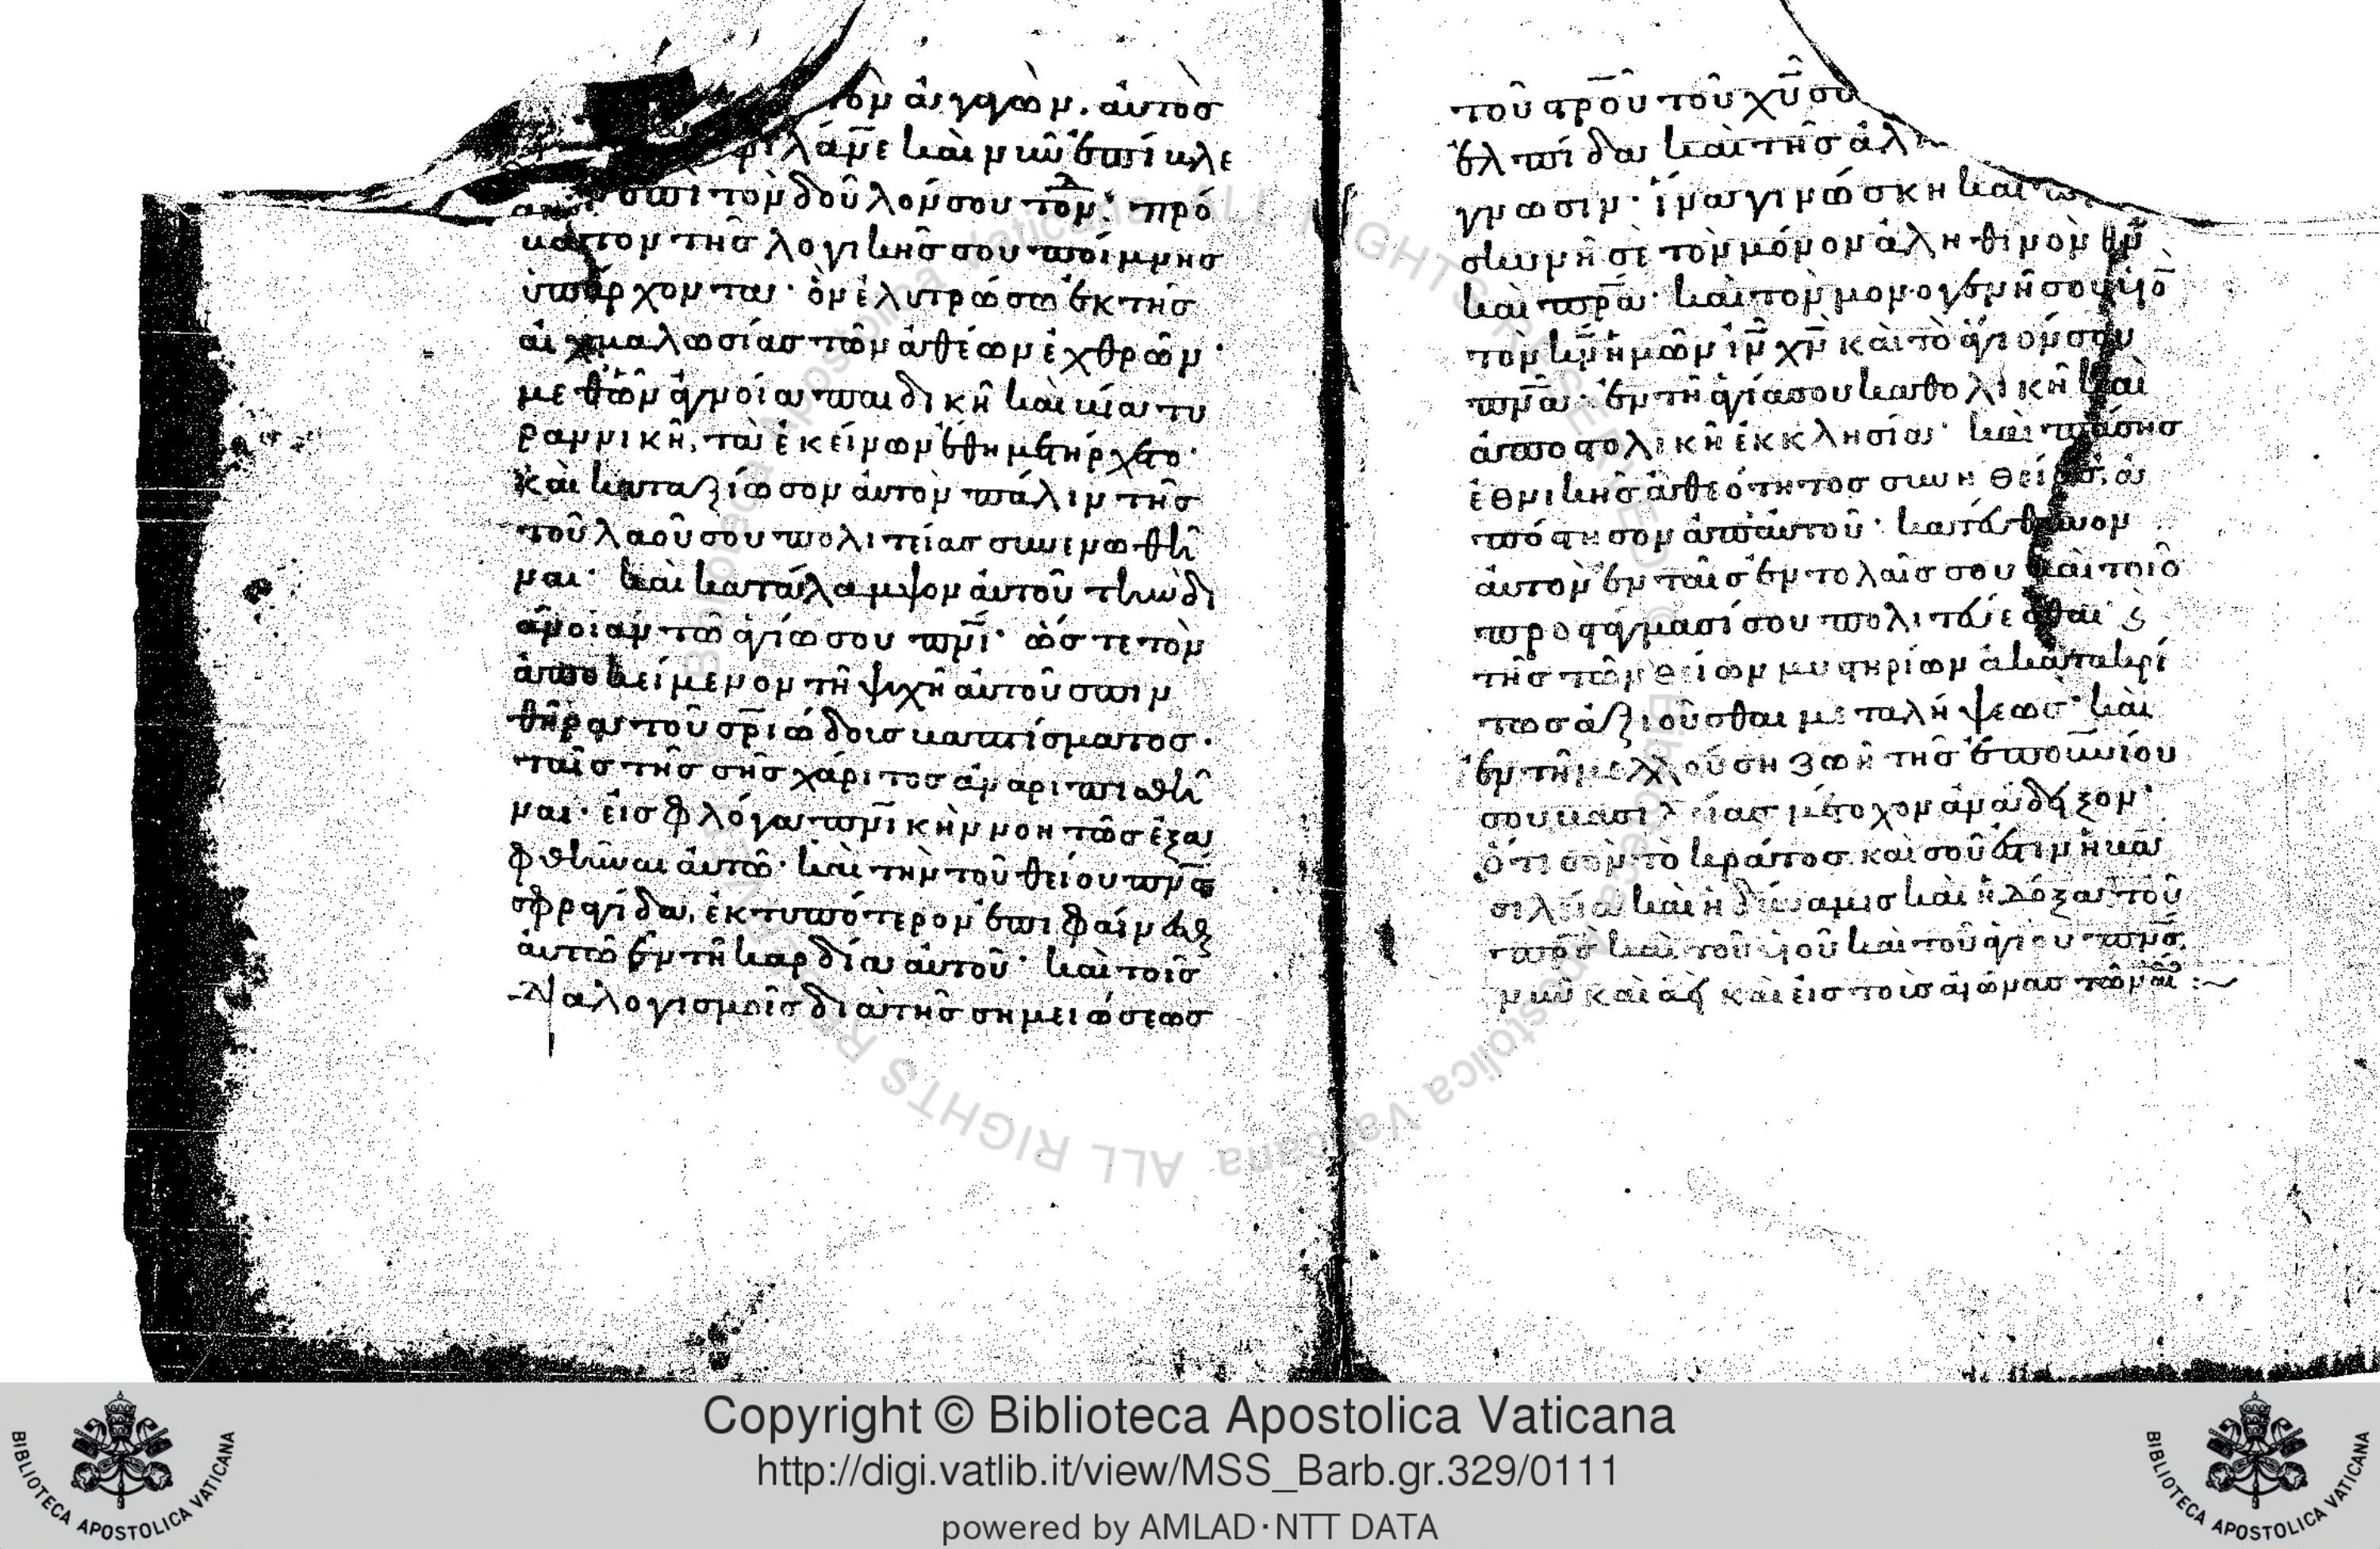 τὸν ἀγαγὼν. ἀυτὸσ
φιλάν̅ε καὶ νῦν ἐπίβλε
ἐπὶ τὸν δοῦλόν σου τόν· πρό
βατον τῆσ λογικῆσ σου ποίμνησ
ὑπάρχοντα· ὃν ἐλυτρώσω ἐκ τῆσ
αἰχμαλωσίασ τῶν ἀθέων ἐχθρῶν·
μεθῶν ἀγνοία παιδικῆ καὶ βία τυ
ραννικῆ, τὰ ἐκείνων ἔθη μετήρχετο·
καὶ καταξίωσον ἀυτὸν πάλιν τῆσ
τοῦ λαοῦ σου πολιτείασ συνενωθῆ
ναι· καὶ κατάλαμψον ἀυτοῦ τὴν δι
άνοιαν τῶ ἁγίω σου πν̅ι· ὥστε τὸν
ἀποκείμενον τῆ ψυχῆ ἀυτοῦ σπιν
θῆρα τοῦ σρ̅ιώδουσ βαπτίσματοσ·
ταῖσ τῆσ σῆσ χάριτοσ ἀναριπισθῆ
ναι· εἰσ φλόγα πν̅ικὴν νοητῶσ ἐξα
φθῆναι ἀυτῶ· καὶ τὴν τοῦ θείου πν̅σ
σφραγίδα, ἐκτυπότερον ἐπιφάναι
ἀυτῶ ἐν τῆ καρδία ἀυτοῦ· καὶ τοῖσ
διαλογισμοῖσ διὰ τῆσ σημειώσεωσ
τοῦ στρ̅οῦ τοῦ χ̅υ σου
ἐλπίδα καὶ τῆσ ἀλ
γνωσιν· ἵνα γινώσκη καὶ
σκυνῆ σὲ τὸν μόνον ἀληθινὸν θ̅ν
καὶ πρ̅α· καὶ τὸν μονογενῆ σου υἱὸ
τὸν κ̅ν ἡμῶν ι̅ν χ̅ν καὶ τὸ ἅγιόν σου
πν̅α· ἐν τῆ ἁγία σου καθολικῆ καὶ
ἀποστολικῆ ἐκκλησία· καὶ πάσησ
ἐθνικῆσ ἀθεότητοσ συνηθείασ, ἀ
πόστησον ἀπ' ἀυτοῦ· κατεύθυνον
ἀυτὸν ἐν ταῖσ ἐντολαῖσ σου καὶ τοῖσ
προστάγμασί σου πολιτεύεσθαι
τῆσ τῶν θείων μυστηρίων ἀκατακρί
τωσ ἀξιοῦσθαι μεταλήψεωσ· καὶ
ἐν τῆ μελλούση ζωῆ τῆσ ἐπου̅νίου
σου βασιλείασ μέτοχον ἀνάδειξον·
ὅτι σὸν τὸ κράτοσ καὶ σοῦ ἐστιν ἡ βα
σιλεία καὶ ἡ δύναμισ καὶ ἡ δόξα τοῦ
πρ̅σ καὶ τοῦ υἱοῦ καὶ τοῦ ἁγίου πν̅σ
νῦν καὶ ἀεὶ καὶ εἰσ τοὺσ αἰῶνασ τῶν αἰ :~
Copyright © Biblioteca Apostolica Vaticana
http://digi.vatlib.it/view/MSS_Barb.gr.329/0111
powered by AMLAD·NTT DATA
BIBLIOTECA APOSTOLICA VATICANA
BIBLIOTECA APOSTOLICA VATICANA